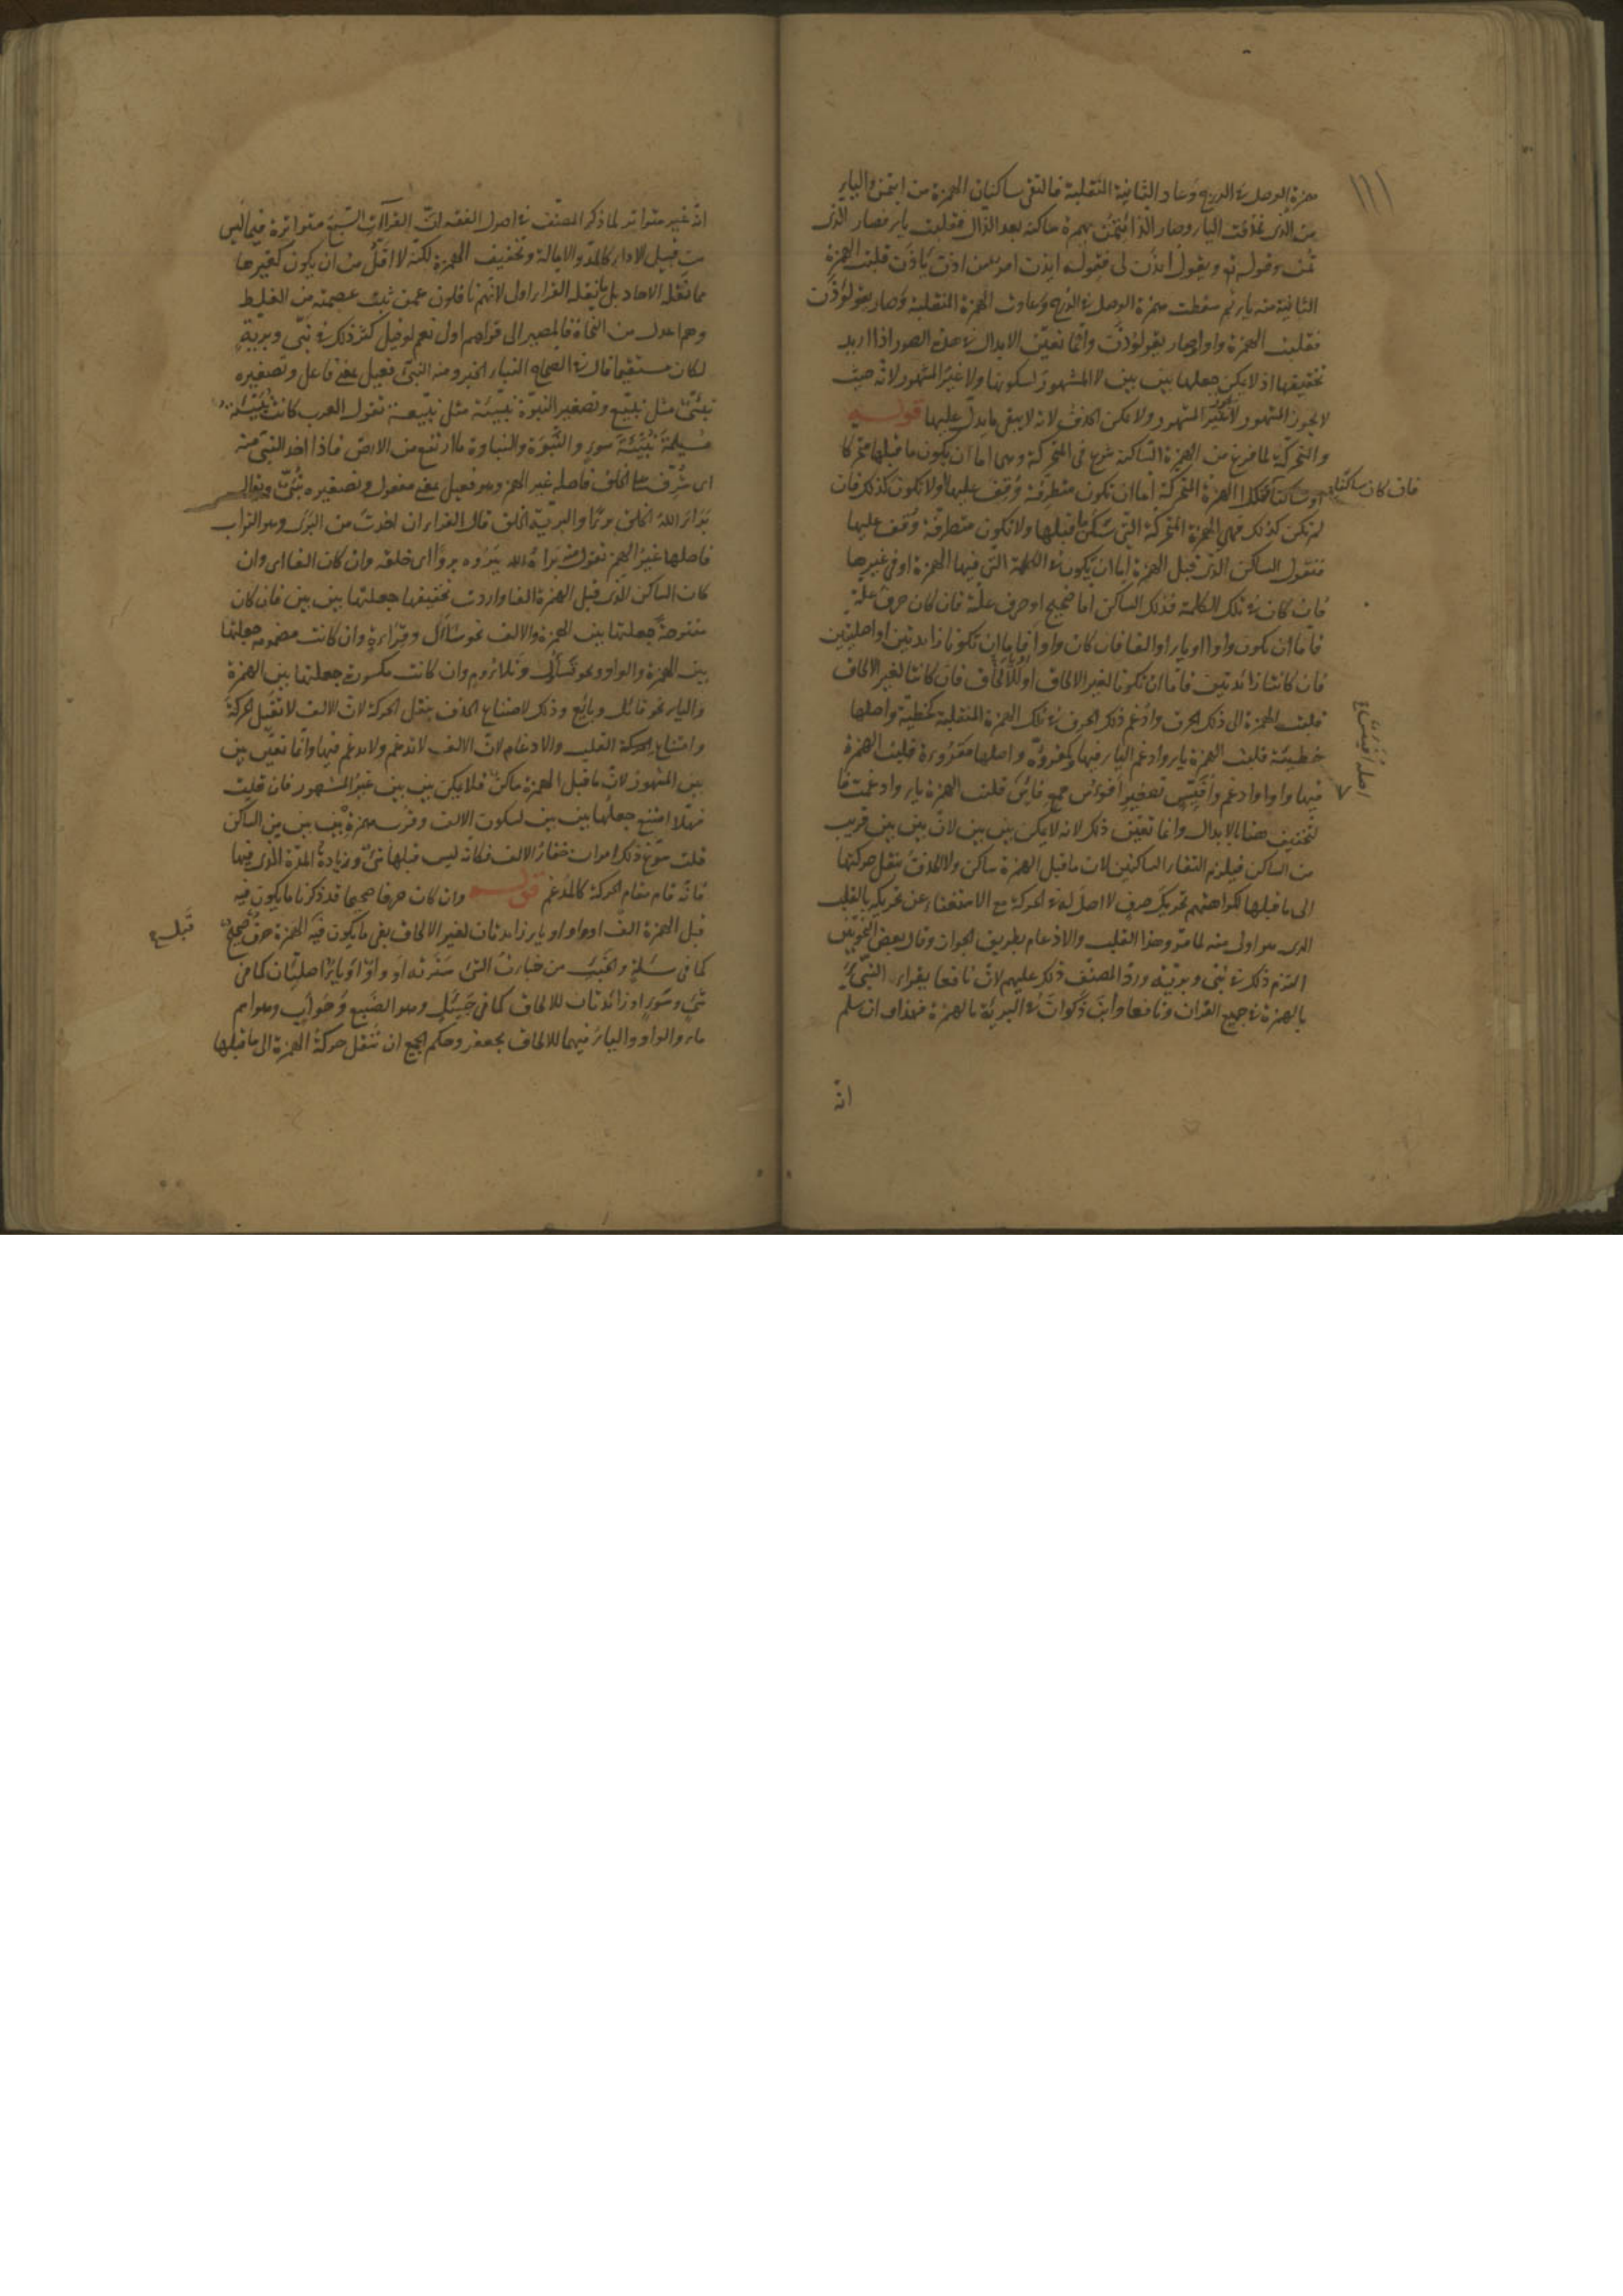 ١١١
همزة الوصل في الدرج وعاد الثانية المنقلبة فالتقى ساكنان الهمزة من ايتمن والياء
من الذي فحذفت الياء وصار الذ ائتمن بهمزة ساكنة بعد الذال فقلبت ياء فصار الذي
تمن وقوله تع ويقول ائذن لي فقوله ايذن امر من اذن ياذن قلبت الهمزة
الثانية منه ياء ثم سقطت همزة الوصل في الدرج وعادت الهمزة المنقلبة وصار يقولؤذن
فقلبت الهمزة واوا وصار يقولوذن وانما تعين الابدال في هذه الصور اذا اريد
تخفيفها اذ لا يمكن جعلها بين بين لا المشهور لسكونها ولا غير المشهور لانه حيث
لا يجوز المشهور لا يجوز غير المشهور ولا يمكن الحذف لانه لا يبقى ما يدل عليها قوله
والمتحركة لما فرغ من الهمزة الساكنة شرع في المتحركة وهي اما ان يكون ما قبلها متحركا
او ساكنا فان كان ساكنا فتلك الهمزة المتحركة اما ان تكون متطرفة وقف عليها او لا تكون كذلك فان
لم تكن كذلك فهي الهمزة المتحركة التي سكن ما قبلها ولا تكون متطرفة وقف عليها
فنقول الساكن الذي قبل الهمزة اما ان يكون في الكلمة التي فيها الهمزة او في غيرها
فان كان في تلك الكلمة فذلك الساكن اما صحيح او حرف علة فان كان حرف علة
فاما ان يكون واوا او ياء او الفا فان كان واوا او ياء فاما ان تكونا زائدتين او اصليتين
فان كانتا زائدتين فاما ان تكونا لغير الالحاق او للالحاق فان كانتا لغير الالحاق
قلبت الهمزة الى ذلك الحرف وادغم ذلك الحرف في تلك الهمزة المنقلبة كخطية واصلها
خطيئة قلبت الهمزة ياء وادغم الياء فيها وكمقروة واصلها مقروءة قلبت الهمزة
فيها واوا وادغم وافيس تصغير افؤس جمع فاس قلبت الهمزة ياء وادغمت فا
اصله افيئس
لتخفيف هنا بالابدال وانما تعين ذلك لانه لا يمكن بين بين لان بين بين قريب
من الساكن فيلزم التقاء الساكنين لان ما قبل الهمزة ساكن ولا الحذف بنقل حركتها
الى ما قبلها لكراهتهم تحريك حرف لا اصل له في الحركة مع الاستغناء عن تحريكه بالقلب
الذي هو اولى منه لما مر وهذا القلب والادغام بطريق الجواز وقال بعض النحويين
التزم ذلك في نبي وبرية ورد المصنف ذلك عليهم لان نافعا يقراء النبيء
بالهمزة في جميع القران ونافعا وابن ذكوان في البريئة بالهمزة فهذا وان سلم
انه
انه غير متواتر لما ذكر المصنف في اصول الفقه ان القراآت السبع متواترة فيما ليس
من قبيل الاداء كالمد والامالة وتخفيف الهمزة لكنه لا اقل من ان يكون كغيرها
مما نقله الاحاد بل ما نقله القراء اولى لانهم ناقلون عمن ثبت عصمته من الغلط
وهم اعدل من النحاة فالمصير الى قولهم اولى نعم لو قيل كثر ذلك في نبي وبرية
لكان مستقيما قال في الصحاح النباء الخبر ومنه النبي فعيل بمعنى فاعل وتصغيره
نبيئ مثل نبيع وتصغير النبوة نبيئة مثل نبيعة تقول العرب كانت نبيئة
مسيلمة نبيئة سوء والنبوة والنباوة ما ارتفع من الارض فاذا اخذ النبي منه
اي شرف على الخلق فاصله غير الهمز وهو فعيل بمعنى مفعول وتصغيره نبي ويقال
برا الله الخلق برءا والبرية الخلق قال الفراء ان اخذت من البرى وهو التراب
فاصلها غير الهمز تقول منه براه الله يبروه بروا اي خلقه وان كان الفا اي وان
كان الساكن الذي قبل الهمزة الفا واردت تخفيفها جعلتها بين بين فان كان
مفتوحة جعلتها بين الهمزة والالف نحو ساال وقراءة وان كانت مضمومة جعلتها
بين الهمزة والواو نحو تساؤل وتلاؤم وان كانت مكسورة جعلتها بين الهمزة
والياء نحو قائل وبائع وذلك لامتناع الحذف بنقل الحركة لان الالف لا تقبل الحركة
وامتناع الحركة القلب والادغام لان الالف لا تدغم ولا يدغم فيها وانما تعين بين
بين المشهور لان ما قبل الهمزة ساكن فلا يمكن بين بين غير المشهور فان قلت
فهلا امتنع جعلها بين بين لسكون الالف وقرب همزة بين بين من الساكن
قلت سوغ ذلك امران خفاء الالف فكانه ليس قبلها شئ وزيادة المدة الذي فيها
فانه قام مقام الحركة كالمدغم قوله وان كان حرفا صحيحا قد ذكرنا ما يكون فيه
قبل الهمزة الف او واو او ياء زائدتان لغير الالحاق بقي ما يكون فيه قبل الهمزة حرف صحيح
كما في مسئلة والخبء من خبات الشئ سترته او واو او ياء اصليتان كما في
شيء وسوء او زائدتان للالحاق كما في جيئل وهو الضبع وحوأب وهو اسم
ماء والواو والياء فيهما للالحاق بجعفر وحكم الجميع ان تنقل حركة الهمزة الى ما قبلها